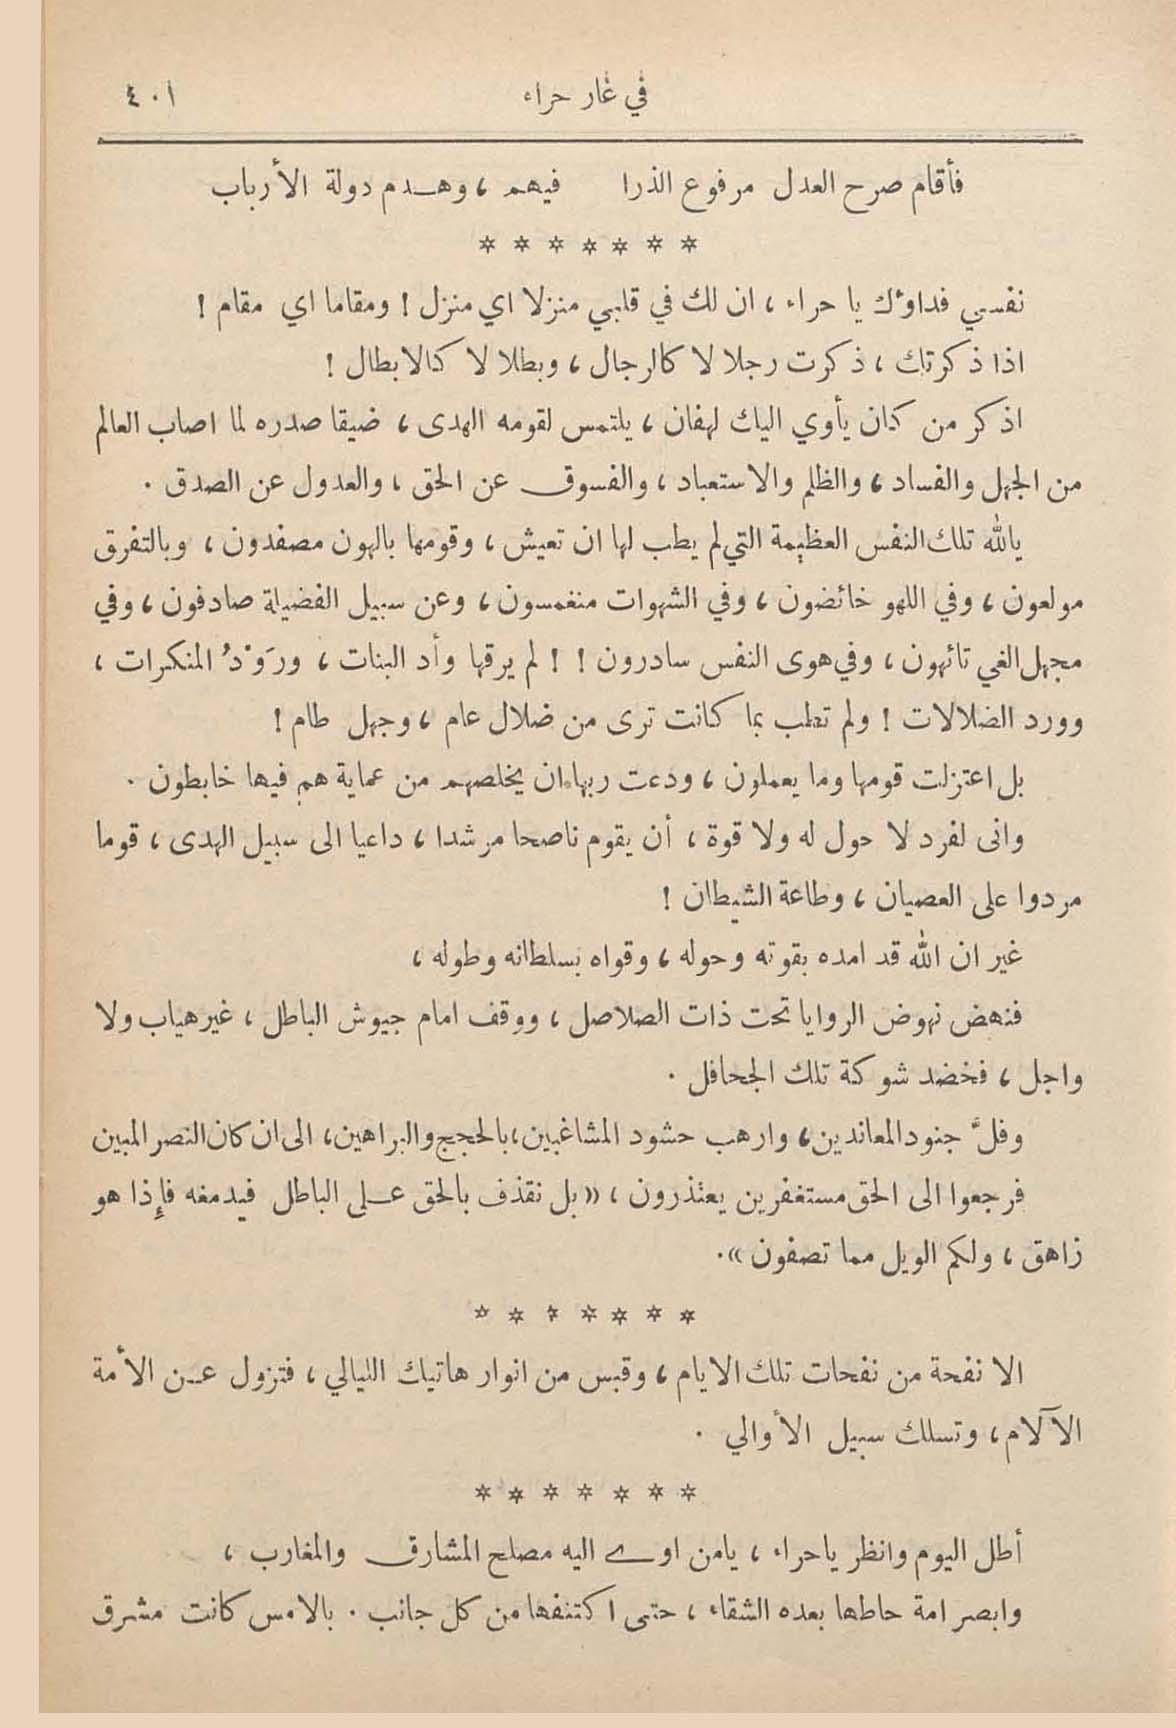 في غار حراء ٤٠١
فأقام صرح العدل مرفوع الذرا فيهم ، وهـدم دولة الأرباب
* * * * * * *
نفسي فداؤك يا حراء ، ان لك في قلبي منزلا اي منزل ! ومقاما اي مقام !
اذا ذكرتك ، ذكرت رجلا لا كالرجال ، وبطلا لا كالابطال !
اذكر من كان يأوي اليك لهفان ، يلتمس لقومه الهدى ، ضيقا صدره لما اصاب العالم
من الجهل والفساد ، والظلم والاستعباد ، والفسوق عن الحق ، والعدول عن الصدق .
يالله تلك النفس العظيمة التي لم يطب لها ان تعيش ، وقومها بالهون مصفدون ، وبالتفرق
مولعون ، وفي اللهو خائضون ، وفي الشهوات منغمسون ، وعن سبيل الفضيلة صادفون ، وفي
مجهل الغي تائهون ، وفي هوى النفس سادرون ! ! لم يرقها وأد البنات ، ورَوْدُ المنكرات ،
وورد الضلالات ! ولم تطب بما كانت ترى من ضلال عام ، وجهل طام !
بل اعتزلت قومها وما يعملون ، ودعت ربها ان يخلصهم من عماية هم فيها خابطون .
وانى لفرد لا حول له ولا قوة ، أن يقوم ناصحا مرشدا ، داعيا الى سبيل الهدى ، قوما
مردوا على العصيان ، وطاعة الشيطان !
غير ان الله قد امده بقوته وحوله ، وقواه بسلطانه وطوله ،
فنهض نهوض الروايا تحت ذات الصلاصل ، ووقف امام جيوش الباطل ، غير هياب ولا
واجل ، فخضد شوكة تلك الجحافل .
وفلَّ جنود المعاندين ، وارهب حشود المشاغبين ، بالحجج والبراهين ، الى ان كان النصر المبين
فرجعوا الى الحق مستغفرين يعتذرون ، « بل نقذف بالحق عـلى الباطل فيدمغه فإذا هو
زاهق ، ولكم الويل مما تصفون » .
* * * * * * *
الا نفحة من نفحات تلك الايام ، وقبس من انوار هاتيك الليالي ، فتزول عـن الأمة
الآلام ، وتسلك سبيل الأوالي .
* * * * * * *
أطل اليوم وانظر ياحراء ، يامن اوى اليه مصلح المشارق والمغارب ،
وابصر امة حاطها بعده الشقاء ، حتى اكتنفها من كل جانب . بالامس كانت مشرق